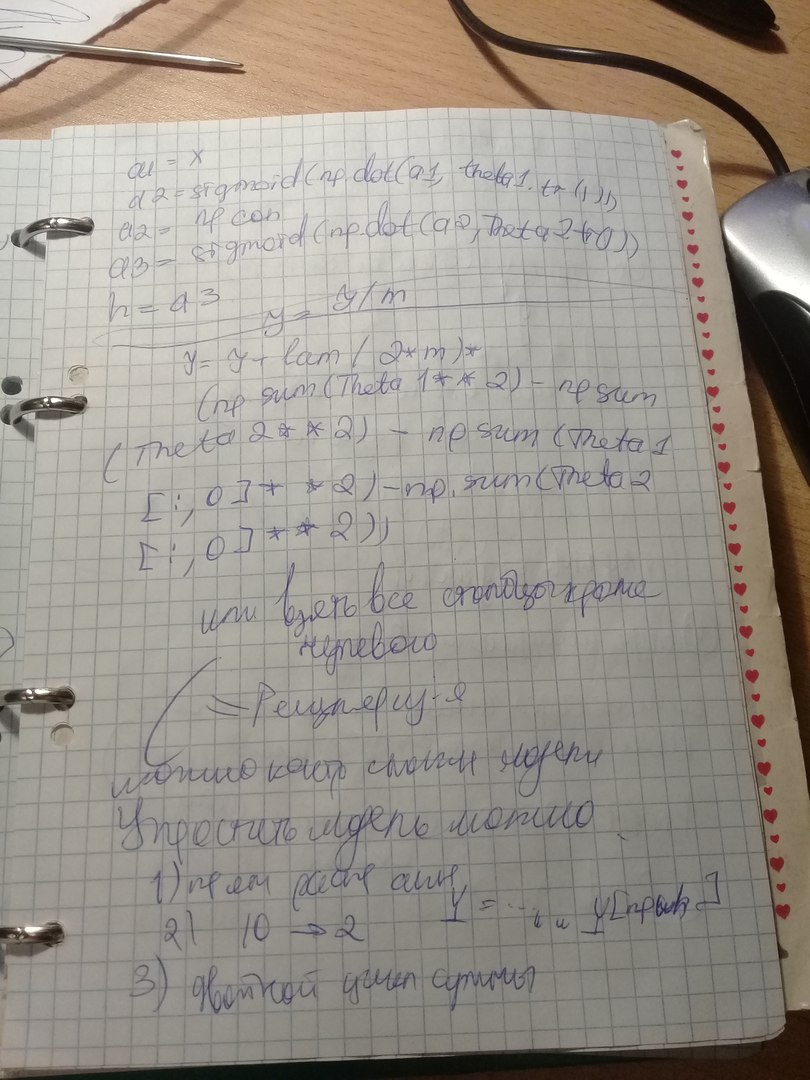 a1 = x
a2 = sigmoid(np.dot(a1, theta1.tr()))
a2 = np con
a3 = sigmoid(np.dot(a2, Theta2.tr()))
h = a3
y = y/m
y = y + lam/(2*m)*
(np sum(Theta 1**2) - np sum
(Theta 2**2) - np sum (Theta 1
[:, 0]**2) - np.sum(Theta 2
[:, 0]**2))
или взять все столбцы кроме
нулевого
можно модели
Упростить модель можно
1)
2) 10 → 2
y = ... y[
3) двойной цикл суммы